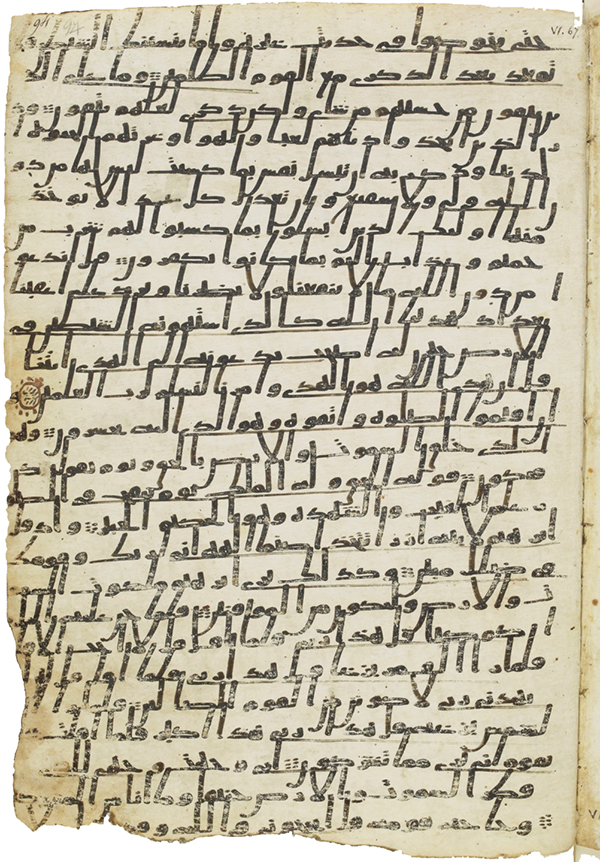 94 94 VI. 67
حتى يخوضوا في حديث غيره واما ينسينك الشيطن فلا
تقعد بعد الذكرى مع القوم الظلمين وما على الذ
ين يتقون من حسابهم من شى ولكن ذكرى لعلهم يتقون وذر
الذين اتخذوا دينهم لعبا ولهوا وغرتهم الحيوة
الدنيا وذكر به ان تبسل نفس بما كسبت ليس لها من دو
ن الله ولى ولا شفيع وان تعدل كل عدل لا يوخذ
منها اوليك الذين ابسلوا بما كسبوا لهم شراب من
حميم وعذاب اليم بما كانوا يكفرون قل اندعو
ا من دون الله ما لا ينفعنا ولا يضرنا ونرد على اعقبنا
بعد اذ هدينا الله كالذى استهوته الشيطين في
الارض حيرن له اصحب يدعونه الى الهدى ائتنا
قل ان هدى الله هو الهدى وامرنا لنسلم لرب العلمين
وان اقيموا الصلوة واتقوه وهو الذى اليه تحشرون وهو
الذى خلق السموت والارض بالحق ويوم يقول كن
فيكون قوله الحق وله الملك يوم ينفخ في الصور
علم الغيب والشهدة وهو الحكيم الخبير واذ قال
ابرهيم لابيه ازر اتتخذ اصنما الهة انى اريك وقومك
في ضلل مبين وكذلك نرى ابرهيم ملكوت السمو
ت والارض وليكون من الموقنين فلما جن عليه
اليل را كوكبا قال هذا ربى فلما افل قال لا احب
فلما را القمر بازغا قال هذا ربى فلما افل قال لئن لم
يهدنى ربى لاكونن من القوم الضالين فلما را ا
لشمس بازغة قال هذا ربى هذا اكبر فلما افلت
يقوم انى برى مما تشركون انى وجهت وجهى للذى
فطر السموت والارض حنيفا وما انا من المشركين
وحاجه قومه قال اتحجونى في الله وقد